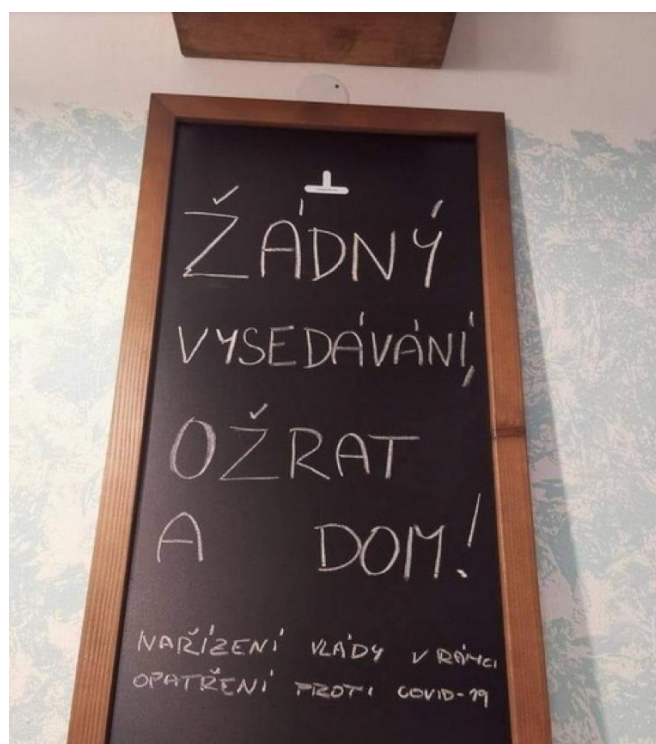 ŽÁDNÝ
VYSEDÁVÁNÍ,
OŽRAT
A DOM!
NAŘÍZENÍ VLÁDY V RÁMCI
OPATŘENÍ PROTI COVID-19